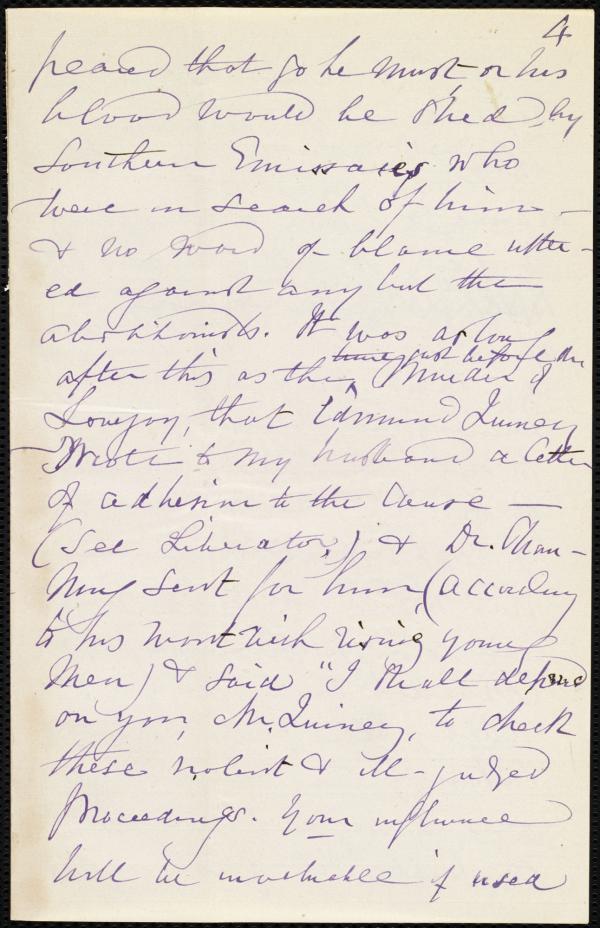 4
peared that go he must, or his
blood would be shed, by
Southern Emissaries who
were in search of him -
& no word of blame utter-
ed against any but the
abolitionists. It was as long
after this as the
time just before the
Murder of
Lovejoy, that Edmund Quincy
wrote to my husband a letter
of adhesion to the cause —
(see Liberator,) & Dr. Chan-
ning sent for him, (according
to his wont with rising young
men) & said "I shall depend
on you, Mr. Quincy, to check
these violent & ill-judged
proceedings. Your influence
will be invaluable if used